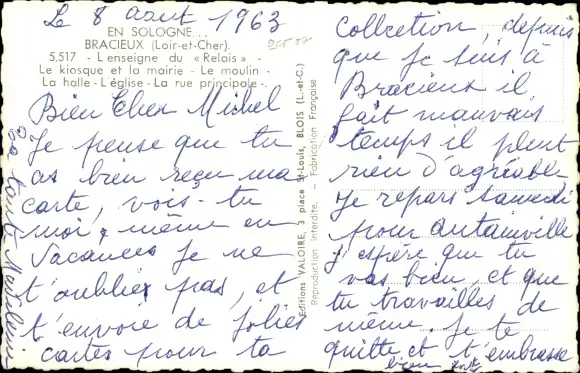 Le 8 Aout 1963
EN SOLOGNE...
BRACIEUX (Loir-et-Cher).
5.517 - L'enseigne du « Relais » -
Le kiosque et la mairie - Le moulin -
La halle - L'église - La rue principale -
Bien Cher Michel
Je pense que tu
as bien reçu ma
carte, vois-tu
moi, même en
vacances je ne
t'oublies pas, et
t'envoie de jolies
cartes pour ta
Editions VALOIRE, 3 place St-Louis, BLOIS (L.-et-C.)
Reproduction Interdite. - Fabrication Française
Collection, depuis
que je suis à
Bracieux il
fait mauvais
temps il pleut
rien d'agréable
Je repars samedi
pour autainville
j'espère que tu
vas bien et que
tu travailles de
même. Je te
quitte et t'embrasse
bien fort
Ta tante